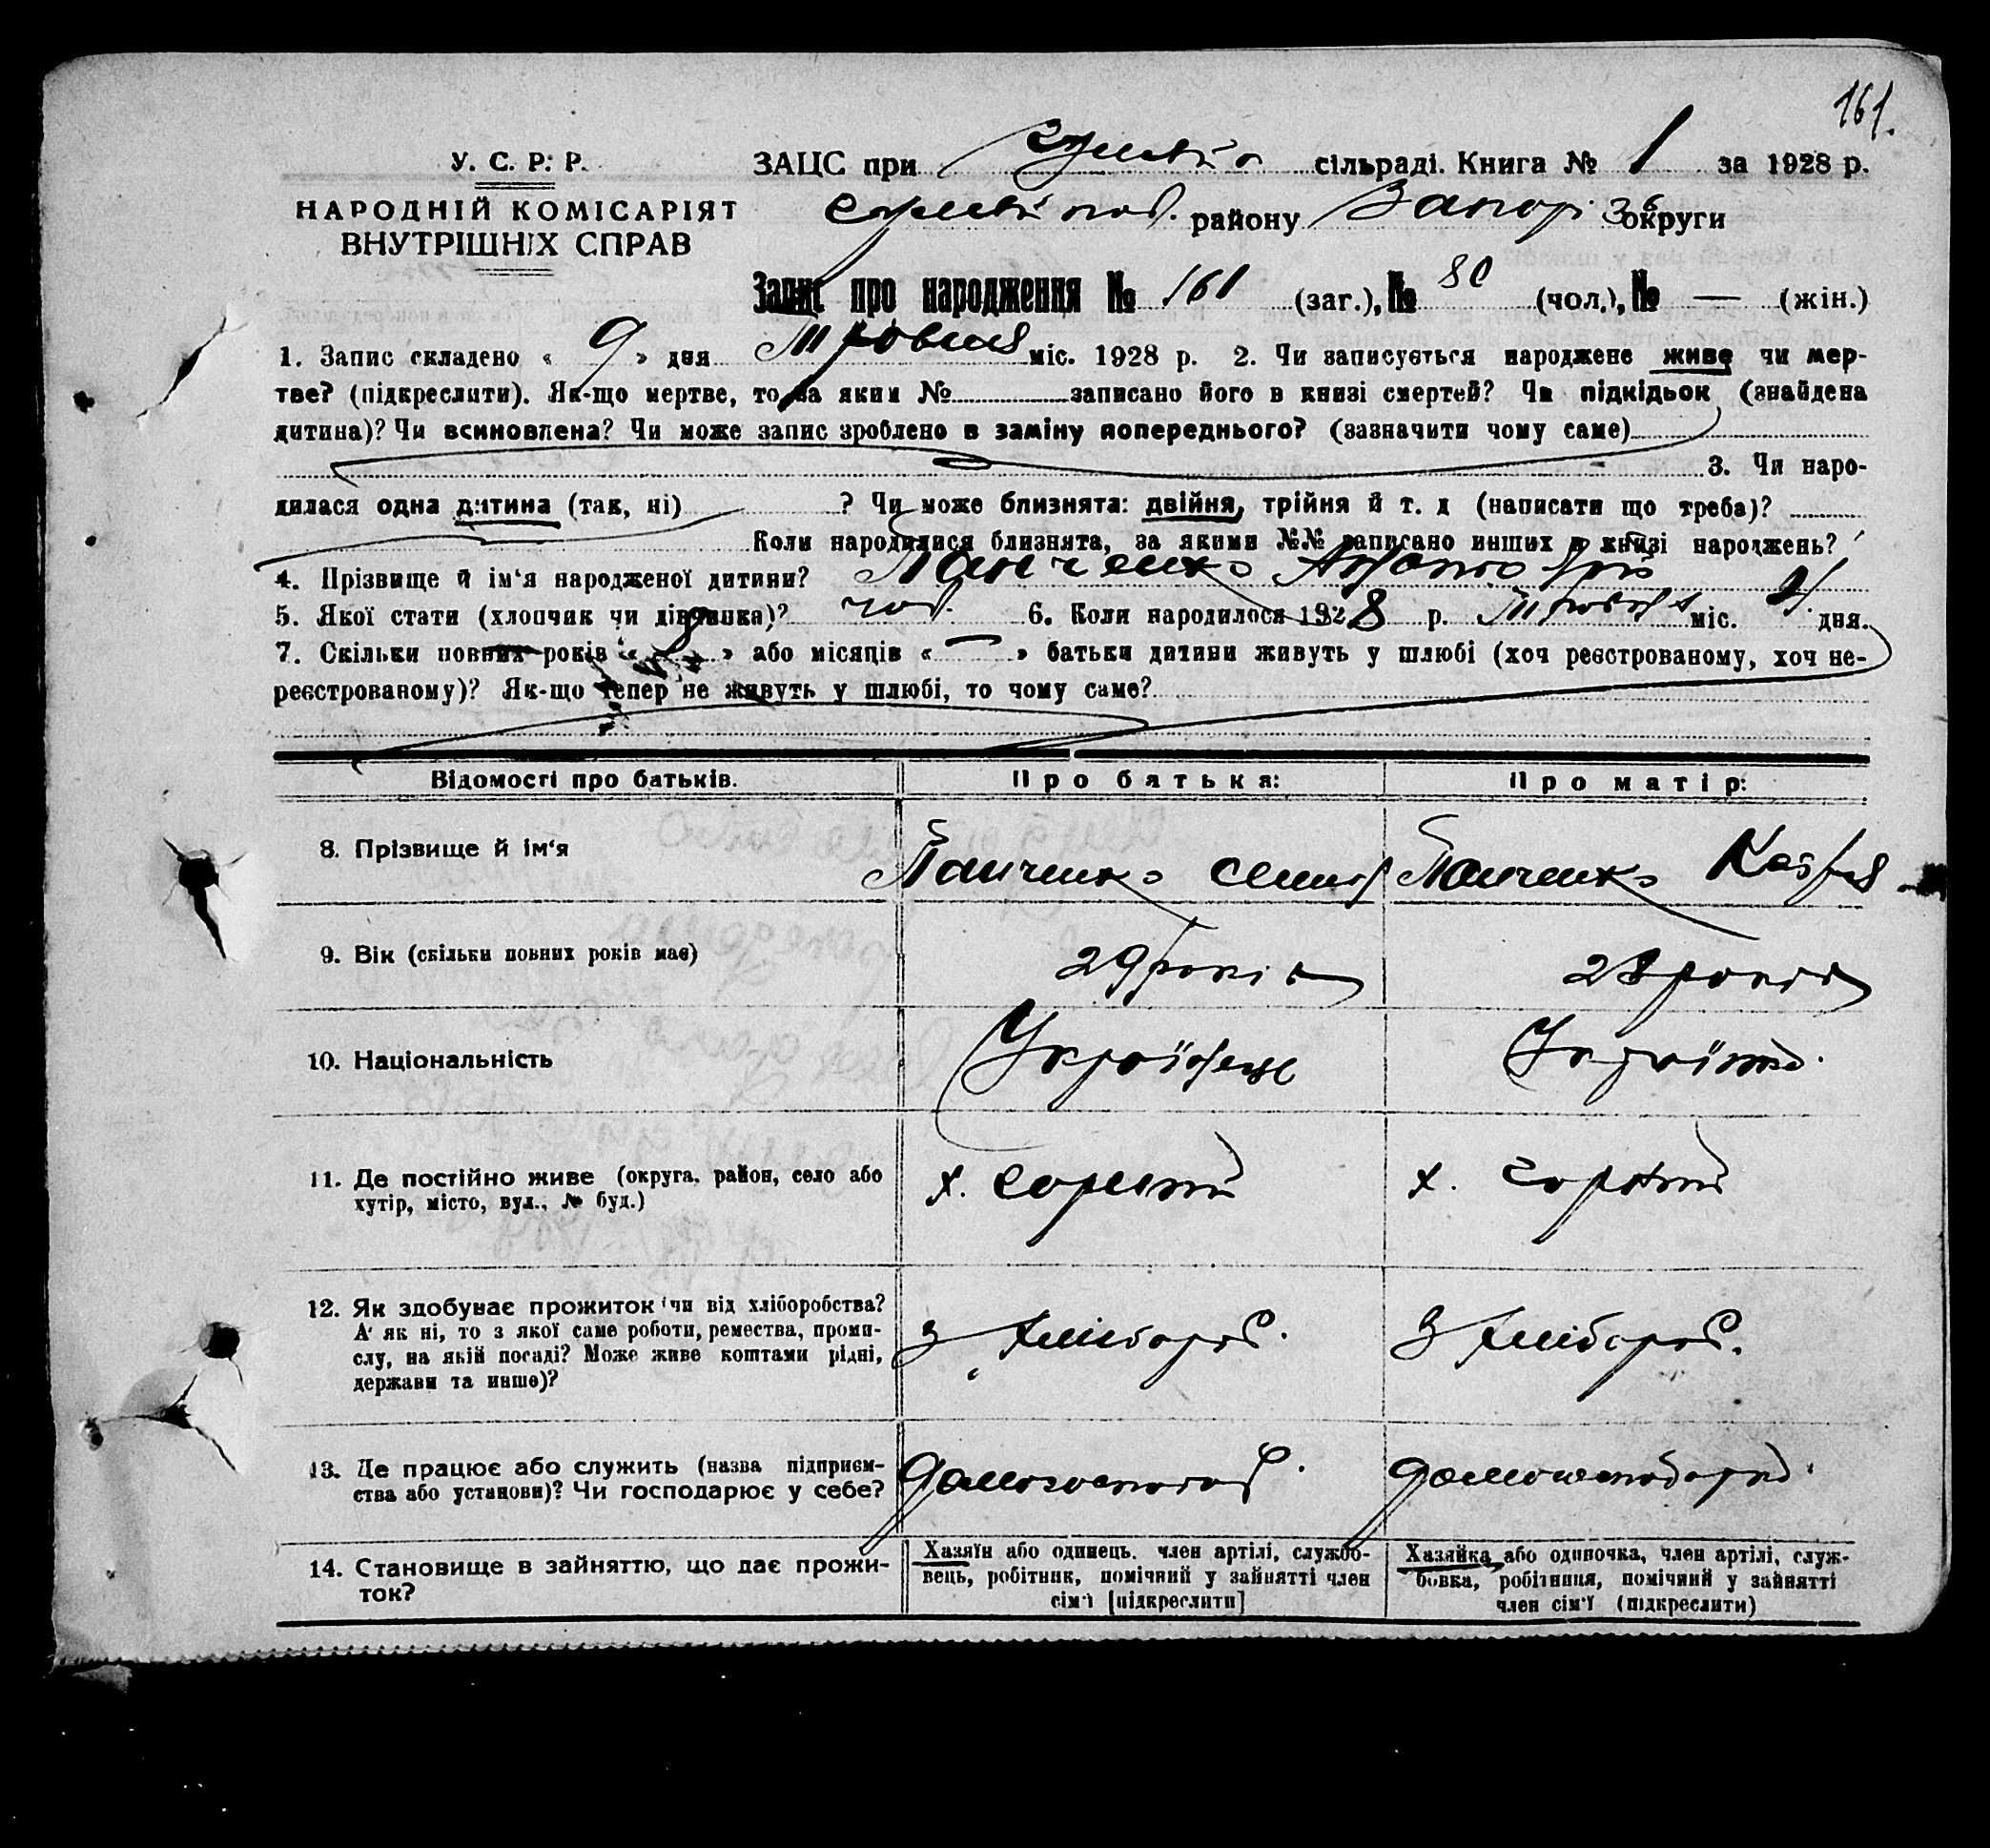 161.
У. С. Р. Р.
НАРОДНІЙ КОМІСАРІЯТ
ВНУТРІШНІХ СПРАВ
ЗАЦС при сільраді. Книга № 1 за 1928 р.
району Запорі З округи
Запис про народження № 161 (заг.), № 80 (чол.), № — (жін.)
1. Запис складено « 9 » дня Травня міс. 1928 р. 2. Чи записується народжене живе чи мер-
тве? (підкреслити). Як-що мертве, то за яким № записано його в книзі смертей? Чи підкідьок (знайдена
дитина)? Чи всиновлена? Чи може запис зроблено в заміну попереднього? (зазначити чому саме)
3. Чи наро-
дилася одна дитина (так, ні) ? Чи може близнята: двійня, трійня й т. д (написати що треба)?
Коли народилися близнята, за якими №№ записано инших в книзі народжень?
4. Прізвище й ім‘я народженої дитини? Панченко
5. Якої стати (хлопчик чи дівчинка)? чол. 6. Коли народилося 1928 р. Травня міс. дня.
7. Скільки повних років « » або місяців « — » батьки дитини живуть у шлюбі (хоч реєстрованому, хоч не-
реєстрованому)? Як-що тепер не живуть у шлюбі, то чому саме?
Відомості про батьків. Про батька: Про матір:
8. Прізвище й ім‘я Панченко Панченко
9. Вік (скільки повних років має) 29 років 28 років
10. Національність Українец Українка
11. Де постійно живе (округа, район, село або
хутір, місто, вул., № буд.)
х. х.
12. Як здобуває прожиток чи від хліборобства?
А як ні, то з якої саме роботи, ремества, проми-
слу, на якій посаді? Може живе коштами рідні,
держави та инше)?
З хлібороб. З хлібороб.
13. Де працює або служить (назва підприєм-
ства або установи)? Чи господарює у себе?
14. Становище в зайняттю, що дає прожи-
ток?
Хазяїн або одинець, член артілі, службо-
вець, робітник, помічний у зайнятті член
сім‘ї [підкреслити]
Хазяйка або одиночка, член артілі, служ-
бовка, робітниця, помічний у зайнятті
член сім‘ї (підкреслити)